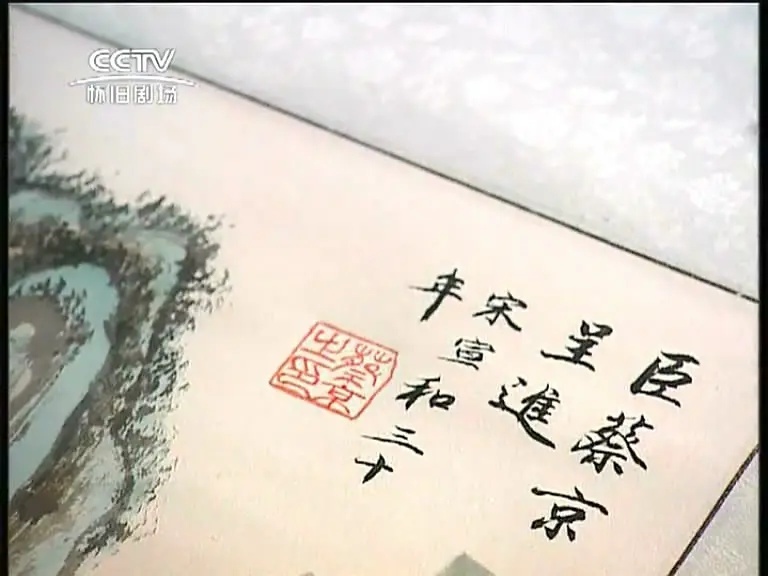 CCTV
怀旧剧场
臣蔡京
呈進
宋宣和三十
年
蔡京之印